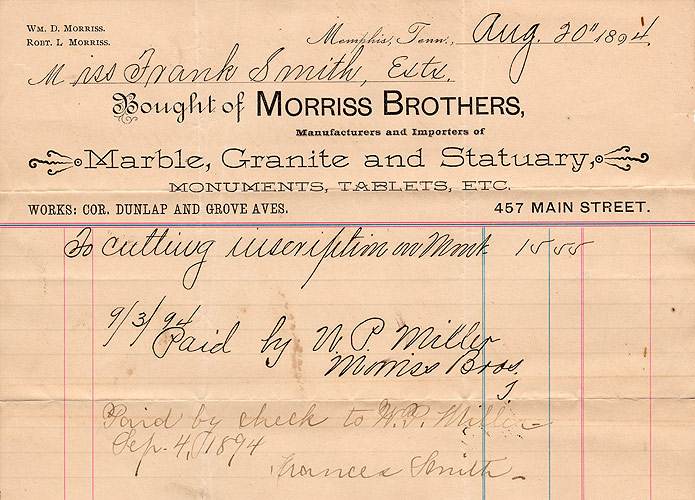 WM. D. MORRISS.
ROBT. L. MORRISS.
Memphis, Tenn., Aug. 20" 1894
Miss Frank Smith, Extx.
Bought of MORRISS BROTHERS,
Manufacturers and Importers of
Marble, Granite and Statuary,
MONUMENTS, TABLETS, ETC.
WORKS: COR. DUNLAP AND GROVE AVES. 457 MAIN STREET.
To cutting inscription on Mont
9/3/94
Paid by W. P. Miller
Morriss Bros.
Paid by check to W. P. Miller
Sep. 4, 1894
Frances Smith